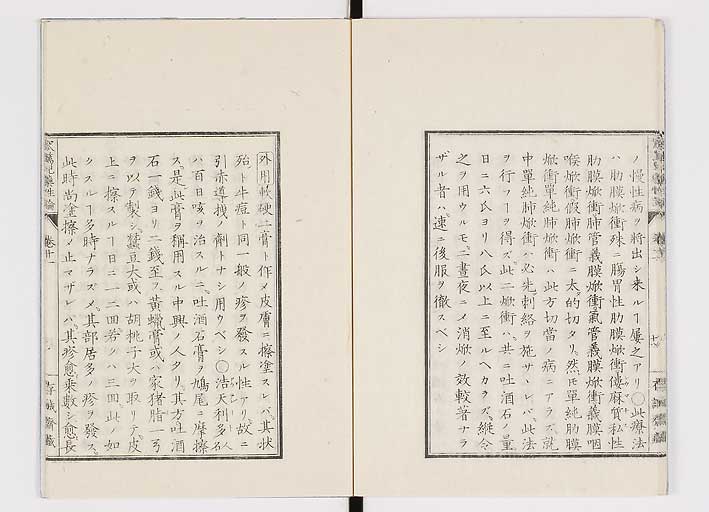 ノ慢性病ヲ將出シ来ルヿ屢之アリ〇此療法
ハ肋膜焮衝殊ニ腸胃性肋膜焮衝僂麻質私性
肋膜焮衝肺管義膜焮衝氣管義膜焮衝義膜咽
喉焮衝假肺焮衝ニ太的切タリ然𪜈單純肋膜
焮衝單純肺焮衝ハ此方切當ノ病ニアラズ就
中單純肺焮衝ハ必先刺絡ヲ施サヽレバ此法
ヲ行フヿヲ得ズ此二焮衝ハ共ニ吐酒石ノ量
日ニ六氏ヨリ八氏以上ニ至ルヘカラズ縱令
之ヲ用ウルモ二晝夜ニメ消焮ノ效較著ナラ
ザル者ハ速ニ後服ヲ徹スベシ
外用軟硬二膏ト作メ皮膚ニ擦塗スレバ其状
殆ト牛痘ト同一般ノ疹ヲ發スル性アリ故ニ
引赤導拽ノ劑トナシ用ウベシ〇浩天利多名人
ハ百日咳ヲ治スルニ吐酒石膏ヲ鳩尾ニ摩擦
ス是此膏ヲ稱用スル中興ノ人タリ其方吐酒
石一錢ヨリ二錢至ヲ黄蠟膏或ハ家猪脂一弓
ヲ以テ製シ蠶豆大或ハ胡桃子大ヲ取リテ皮
上ニ擦スルヿ日ニ一二四若クハ三四此ノ如
クスルヿ多時ナラズメ其部居多ノ疹ヲ發ス
此時尚塗擦ノ止マザレバ其疹愈乘數シ愈長
卷廿一
存誠齋藏